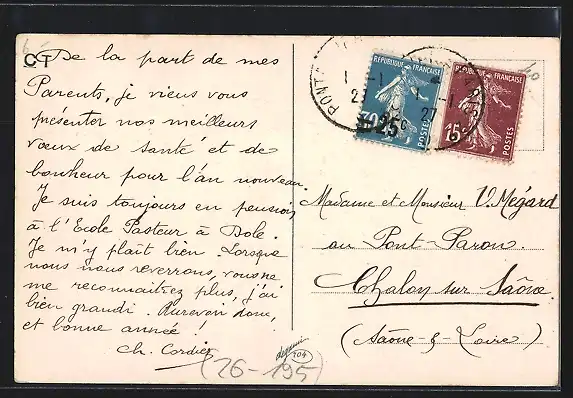 CT
De la part de mes
Parents, je viens vous
présenter nos meilleurs
vœux de santé et de
bonheur pour l'an nouveau.
Je suis toujours en pension
à l'Ecole Pasteur à Dole.
Je m'y plaît bien. Lorsque
nous nous reverrons, vous ne
me reconnaîtrez plus, j'ai
bien grandi. Aurevoir donc,
et bonne année !
Ch. Cordier
(26-195)
104
REPUBLIQUE FRANÇAISE
POSTES
25c
REPUBLIQUE FRANÇAISE
15c
POSTES
27
Madame et Monsieur V. Mégard
au Pont-Paron.
Chalon sur Saône
(Saône-&-Loire)